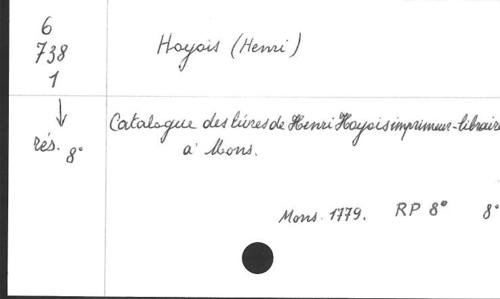 6
738
1
Hoyois (Henri)
↓
rés. 8°
Catalogue des livres de Henri Hoyois imprimeur-libraire
à Mons.
Mons. 1779. RP 8° 8°